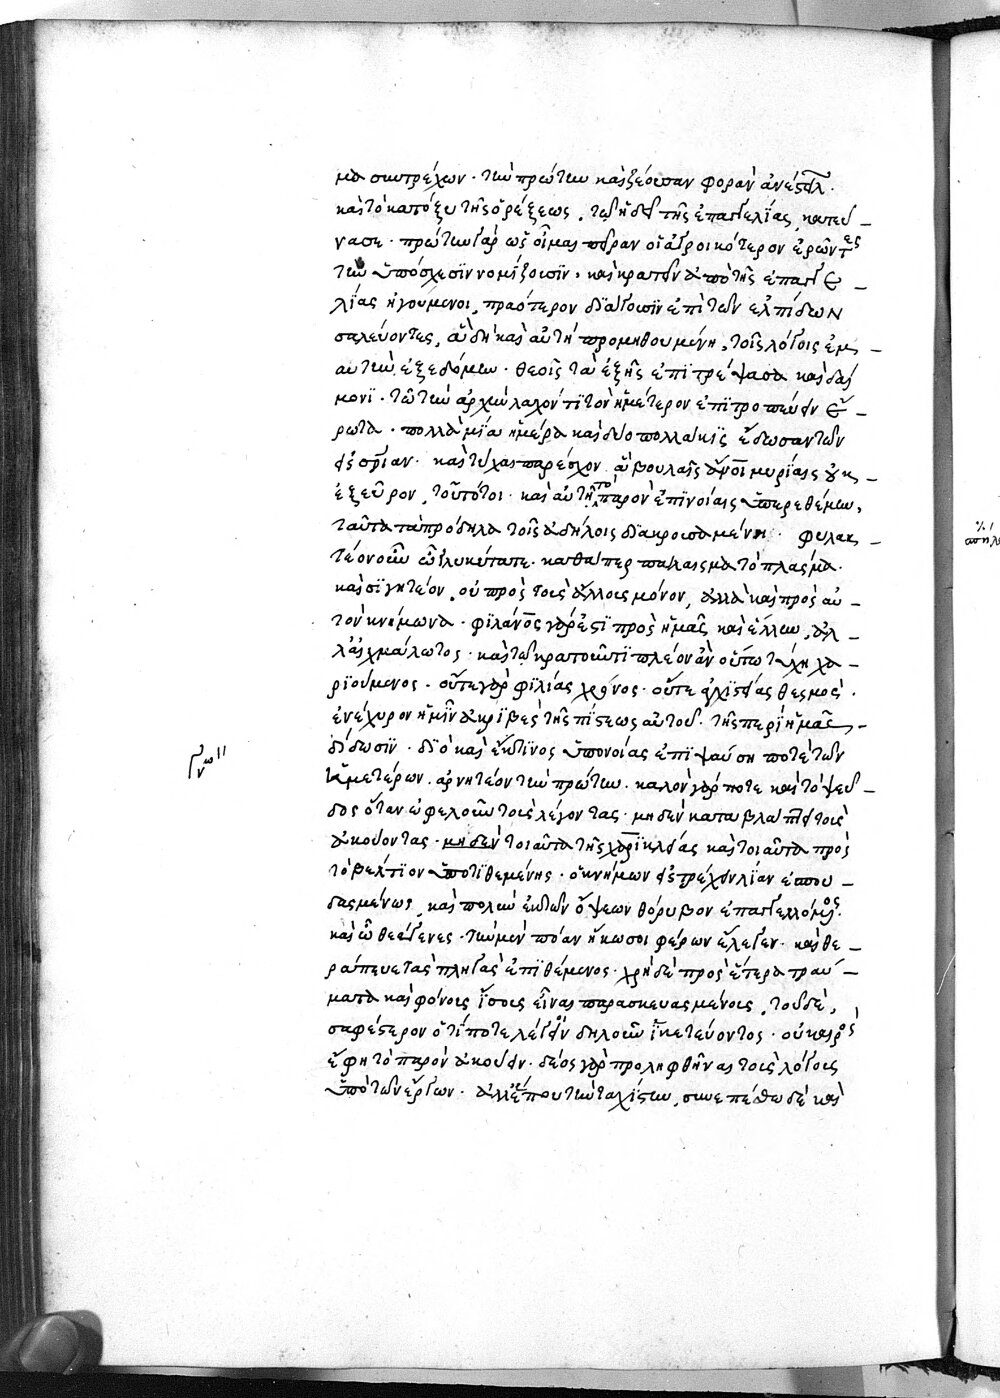 μα συντρέχων · τὴν πρώτην καὶ ζέουσαν φορὰν ἀνέστειλ ·
καὶ τὸ κατόξυ τῆς ὀρέξεως, τῷ ἡδεῖ τῆς ἐπαγγελίας, κατεύ -
νασε · πρώτην γὰρ ὡς οἶμαι πεῖραν οἱ ἀγροικότερον ἐρῶντες
τὴν ὑπόσχεσϊν νομίζουσϊν · καὶ κρατεῖν ἀπὸ τῆς ἐπαγγε -
λίας ἡγούμενοι, πραότερον δϊάγουσϊν ἐπὶ τῶν ἐλπίδων
σαλεύοντες, ἃ δὴ καὶ αὐτὴ προμηθουμένη, τοῖς λόγοις ἐμ -
αυτὴν ἐξεδόμην · θεοῖς τὰ ἑξῆς ἐπϊτρέψασα καὶ δαί
μονϊ · τῷ τὴν ἀρχὴν λαχόντϊ τὸν ἡμέτερον ἐπϊτροπεύειν ἔ -
ρωτα · πολλὰ μία ἡμέρα καὶ δύο πολλάκϊς ἔδωσαν τῶν
εἰς σρίαν · καὶ τύχαι παρέσχον ἃ βουλαῖς ἄνοι μυρίαις οὐκ -
ἐξεῦρον, τοῦτό τοι · καὶ αὐτὴ τὸ παρὸν ἐπϊνοίαις ὑπερεθέμην,
ταῦτα τὰ πρόδηλα τοῖς ἀδήλοις δϊακρουσαμένη · φυλακ -
τέον οὖν ὦ γλυκύτατε · καθάπερ πάλαισμα τὸ πλάσμα ·
καὶ σϊγητέον, οὐ πρὸς τοὺς ἄλλους μόνον, ἀλλὰ καὶ πρὸς αὐ -
τὸν κνήμωνα · φϊλάνος γάρ ἐστϊ πρὸς ἡμᾶς καὶ ἕλλην, ἀλ -
λ' αἰχμάλωτος · καὶ τῷ κρατοῦντϊ πλέον ἂν οὕτω τύχη χα -
ρϊούμενος · οὔτε γὰρ φϊλίας χρόνος · οὔτε ἀγχϊστείας θεσμός ·
ἐνέχυρον ἡμῖν ἀκρϊβὲς τῆς πίστεως αὐτοῦ · τῆς περὶ ἡμᾶς, -
δίδωσϊν · δϊὸ καὶ ἔκ τϊνος ὑπονοίας ἐπϊψαύση ποτὲ τῶν
ἡμετέρων · ἀρνητέον τὴν πρώτην · καλὸν γάρ ποτε καὶ τὸ ψεῦ -
δος ὅταν ὠφελοῦν τοὺς λέγοντας · μηδὲν καταβλάπτει τοὺς
ἀκούοντας · μηδὲν τοιαῦτα τῆς χαρϊκλείας καὶ τοιαῦτα πρὸς
τὸ βέλτϊον ὑποτϊθεμένης · ὁ κνήμων εἰστρέχει λίαν ἐσπου -
δασμένως, καὶ πολὺν ἐκ τῶν ὄψεων θόρυβον ἐπαγγελλόμενος ·
καὶ ὦ θεάγενες · τὴν μὲν πόαν ἥκω σοι φέρων ἔλεγεν · καὶ θε -
ράπευε τὰς πληγὰς ἐπϊθέμενος · χρὴ δὲ πρὸς ἕτερα τραύ -
ματα καὶ φόνους ἴσους εἶναι παρασκευασμένους, τοῦ δὲ,
σαφέστερον ὅ τί ποτε λέγοι δηλοῦν ἱκετεύοντος · οὐ καιρὸς
ἔφη τὸ παρὸν ἀκούειν · δέος γὰρ προληφθῆναι τοὺς λόγους
ὑπὸ τῶν ἔργων · ἀλλ' ἕπου τὴν ταχίστην, συνεπέσθω δὲ καὶ